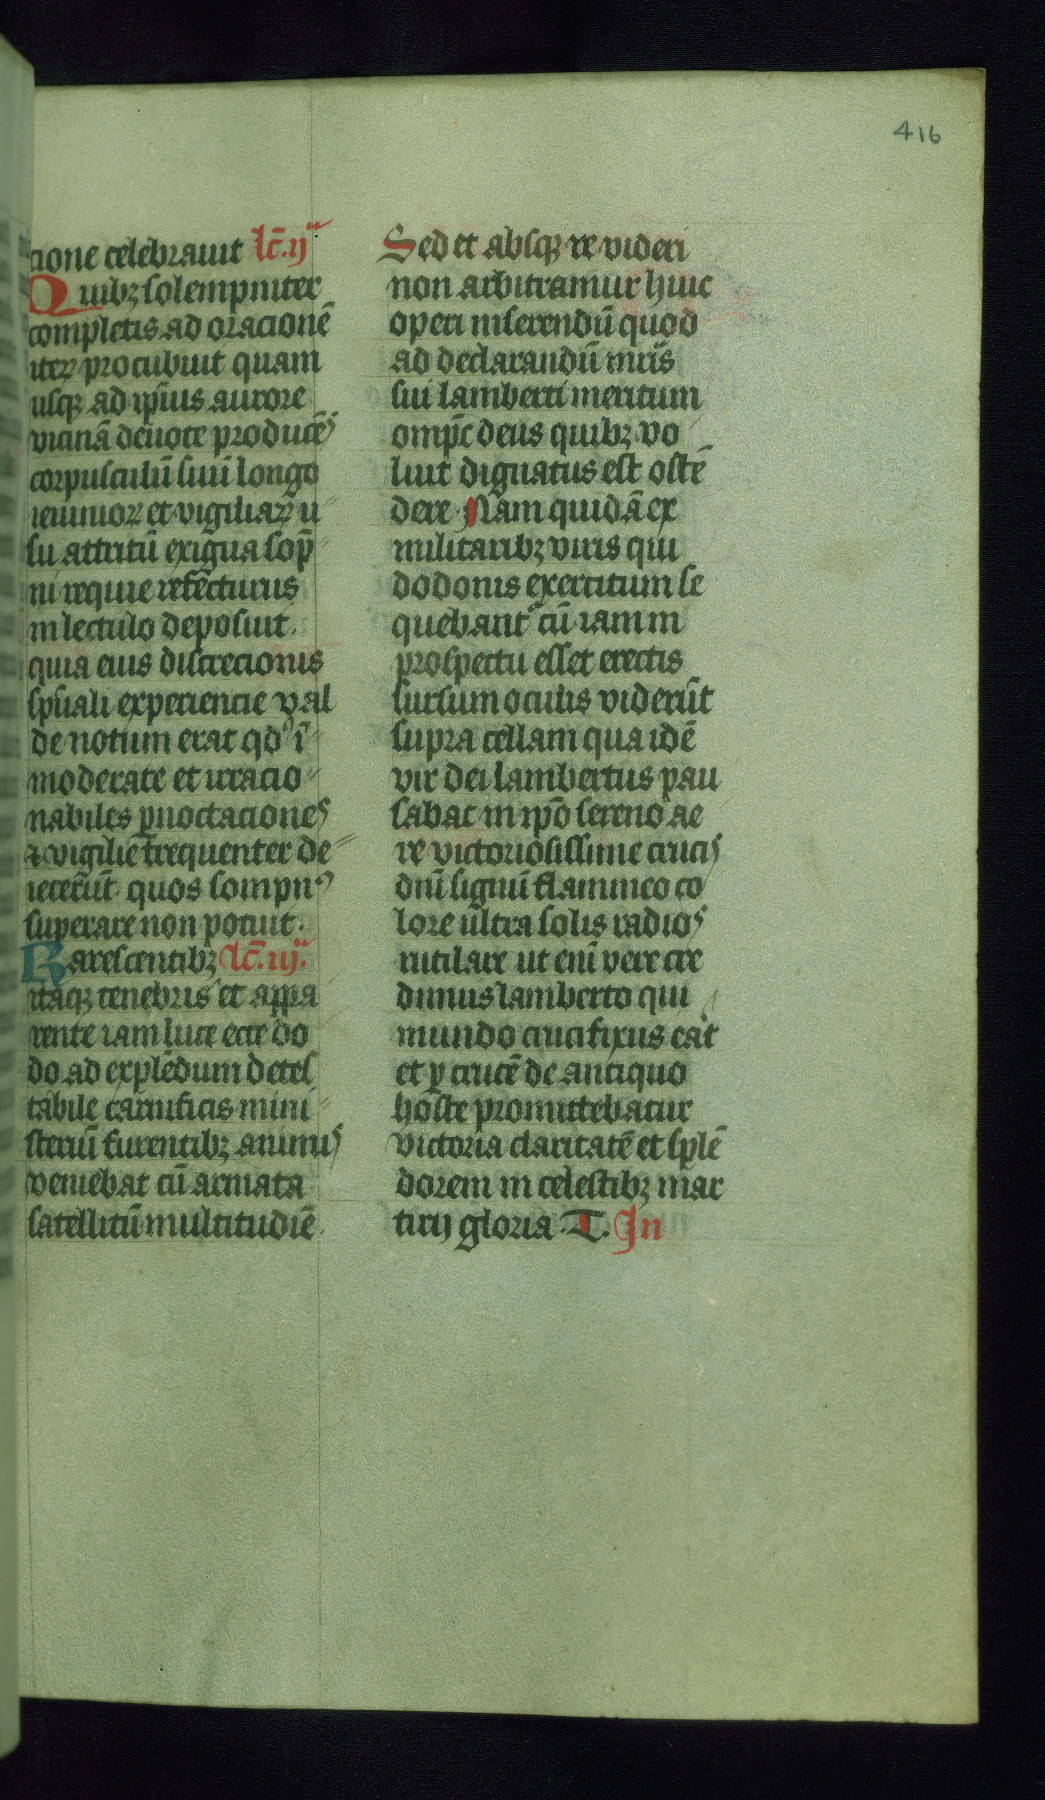 416
cione celebrauit lc̄. ij
Quibꝫ solempniter
completis ad oracionē
iterꝫ procubuit quam
usqꝫ ad ipīus aurore
vicinā deuote producēs
corpusculū suū longo
ieiuniorꝫ et vigiliarꝫ u
su attritū exigua sop̄
ni requie refecturus
in lectulo deposuit.
quia eius discrecionis
sp̄uali experiencie val
de notum erat qd' ī
moderate et irracio
nabiles p̱noctaciones
⁊ vigilie frequenter de
iecerūt quos sompn'
superare non potuit.
Rarescentibꝫ lc̄. iij.
itaqꝫ tenebris et appa
rente iam luce ecce do
do ad explēdum detes
tabile carnificis mini
steriū furentibꝫ animis
veniebat cū armata
satellitū multitudiē.
Sed et absqꝫ re videri
non arbitramur huic
operi inserendū quod
ad declarandū mr̄is
sui lamberti meritum
omp̄c deus quibꝫ vo
luit dignatus est ostē
dere. Nam quidā ex
militaribꝫ viris qui
dodonis exercitum se
quebant' cū iam in
prospectu esset erectis
sursum oculis viderūt
supra cellam qua idē
vir dei lambertus pau
sabat in ip̄o sereno ae
re victoriosissime crucis
dn̄i signū flammeo co
lore ultra solis radios
rutilare ut enī vere cre
dimus lamberto qui
mundo crucifixus eāt
et ꝑ crucē de antiquo
hoste promittebatur
victoria claritatē et splē
dorem in celestibꝫ mar
tirij gloria. T. In